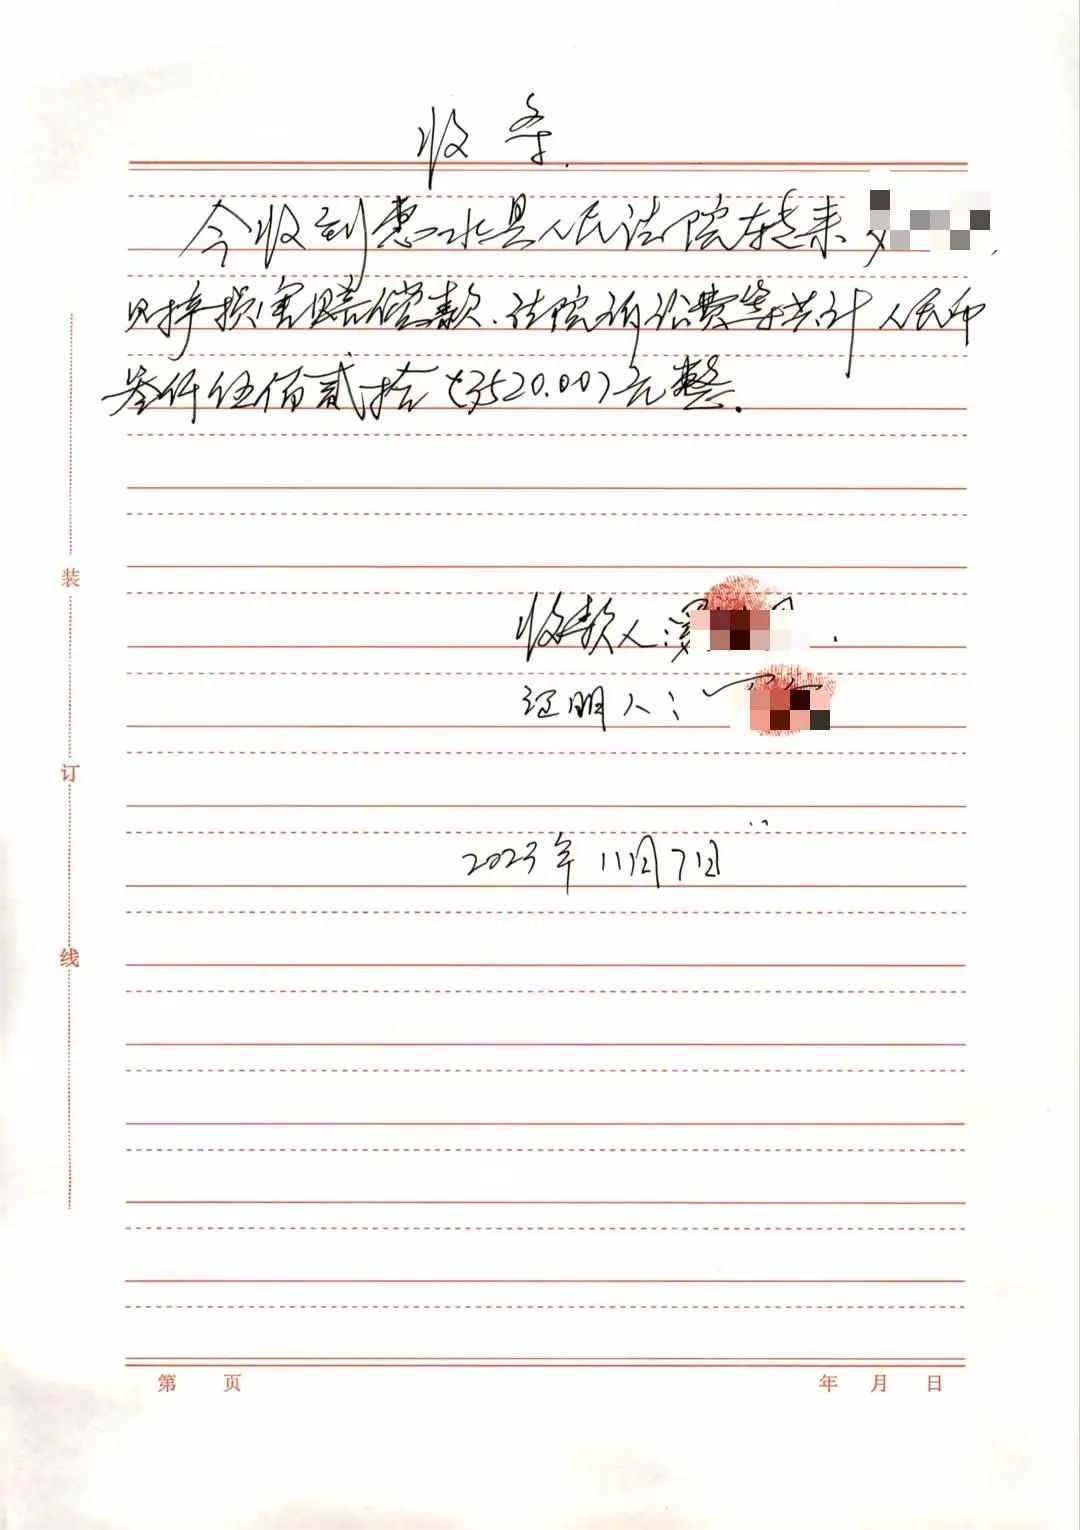 收条
今收到惠水县人民法院转来
财产损害赔偿款、法院诉讼费等共计人民币
叁仟伍佰贰拾(3520.00)元整.
收款人:
证明人:
2023年11月7日
装
订
线
第 页
年 月 日